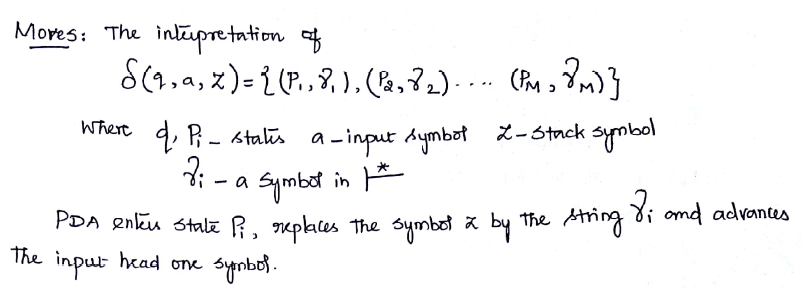 Moves: The interpretation of
δ(q,a,z)={(P₁,γ₁),(P₂,γ₂).... (Pₘ,γₘ)}
Where q, Pᵢ - states a - input symbol z - stack symbol
γᵢ - a symbol in Γ*
PDA enters state Pᵢ, replaces the symbol z by the string γᵢ and advances
the input head one symbol.